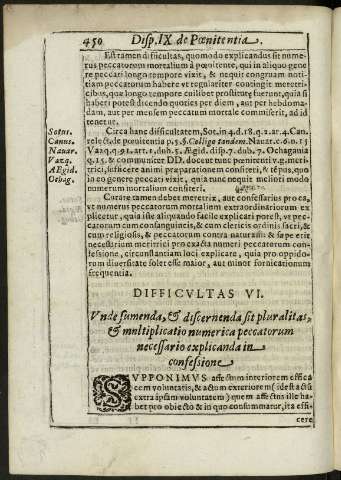 450 Disp. IX de Pœnitentia.
Est tamen difficultas, quomodo explicandus sit nume-
rus peccatorum mortalium à pœnitente, qui in aliquo gene
re peccati longo tempore vixit, & nequit congruam noti-
tiam peccatorum habere vt regulariter contingit meretri-
cibus, quæ longo tempore cuilibet prostitutę fuerunt, quia si
haberi potest dicendo quoties per diem, aut per hebdoma-
dam, aut per mensem peccatum mortale commiserit, ad id
tenetur.
Sotus. Circa hanc difficultatem, Sot. in 4. d. 18. q. 2. ar. 4. Can.
Canus. relect. de pœnitentia p. 5. §. Colligo tandem. Nauar. c. 6. n. 15
Nauar. Vazq. q. 91. ar. 1. dub. 5. Ægid. disp. 7. dub. 7. Ochagauia
Vazq. q. 15. & communiter DD. docent tunc pœnitenti v. g. meri-
AEgid. trici, sufficere animi præparationem confiteri, & tẽpus, quo
Ochag. in eo genere peccati vixit, quia tunc nequit meliori modo
numerum mortalium confiteri.
Curare tamen debet meretrix, aut confessarius pro ea,
vt numerus peccatorum mortalium extraordinariorum ex
plicetur, quia iste aliquando facile explicari potest, vt pec-
catorum cum consanguineis, & cum clericis ordinis sacri, &
cum religiosis, & peccatorum contra naturam: & sæpe erit
necessarium meritrici pro exacta numeri peccatorum con-
fessione, circunstantiam loci explicare, quia pro oppido-
rum diuersitate solet esse maior, aut minor fornicationum
frequentia.
DIFFICVLTAS VI.
Vnde sumenda, & discernenda sit pluralitas,
& multiplicatio numerica peccatorum
necessario explicanda in
confessione
SVPPONIMVS affectum interiorem effica
cem voluntatis, & actum exteriorem (id est actũ
extra ipsam voluntatem) quem affectus ille ha-
bet pro obiecto & in quo consummatur, ita effi-
cere